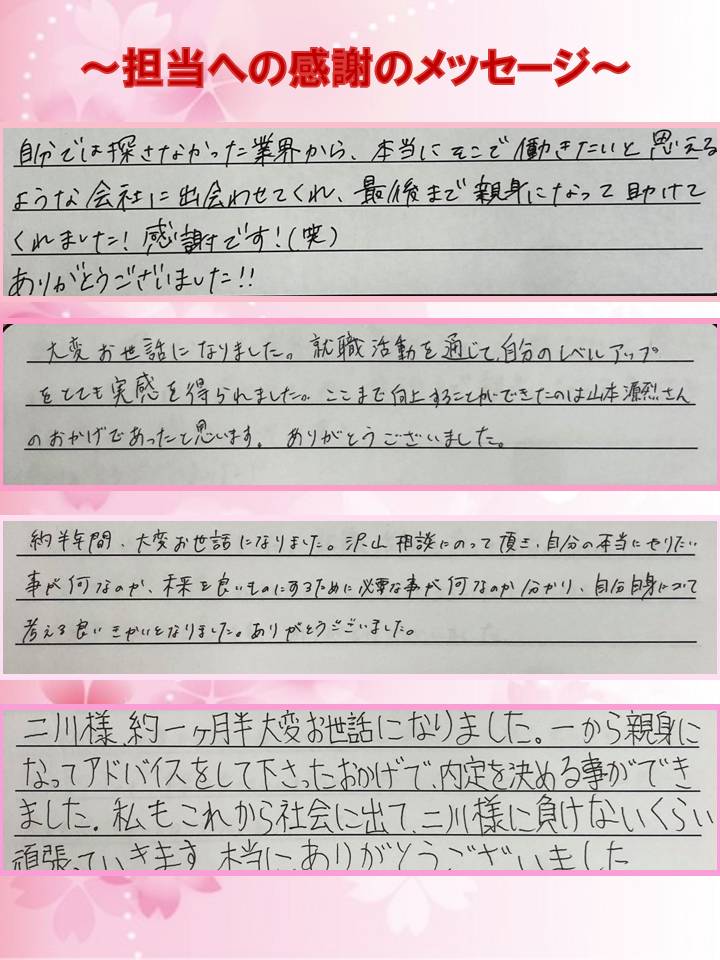 ～担当への感謝のメッセージ～
自分では探さなかった業界から、本当にそこで働きたいと思える
ような会社に出会わせてくれ、最後まで親身になって助けて
くれました！感謝です！(笑)
ありがとうございました!!
大変お世話になりました。就職活動を通じて、自分のレベルアップ
をとても実感を得られました。ここまで向上することができたのは山本源烈さん
のおかげであったと思います。ありがとうございました。
約半年間、大変お世話になりました。沢山相談にのって頂き、自分の本当にやりたい
事が何なのか、未来を良いものにするために必要な事が何なのか分かり、自分自身について
考える良いきかいとなりました。ありがとうございました。
二川様、約一ヶ月半大変お世話になりました。一から親身に
なってアドバイスをして下さったおかげで、内定を決める事ができ
ました。私もこれから社会に出て、二川様に負けないくらい
頑張っていきます 本当に、ありがとうございました